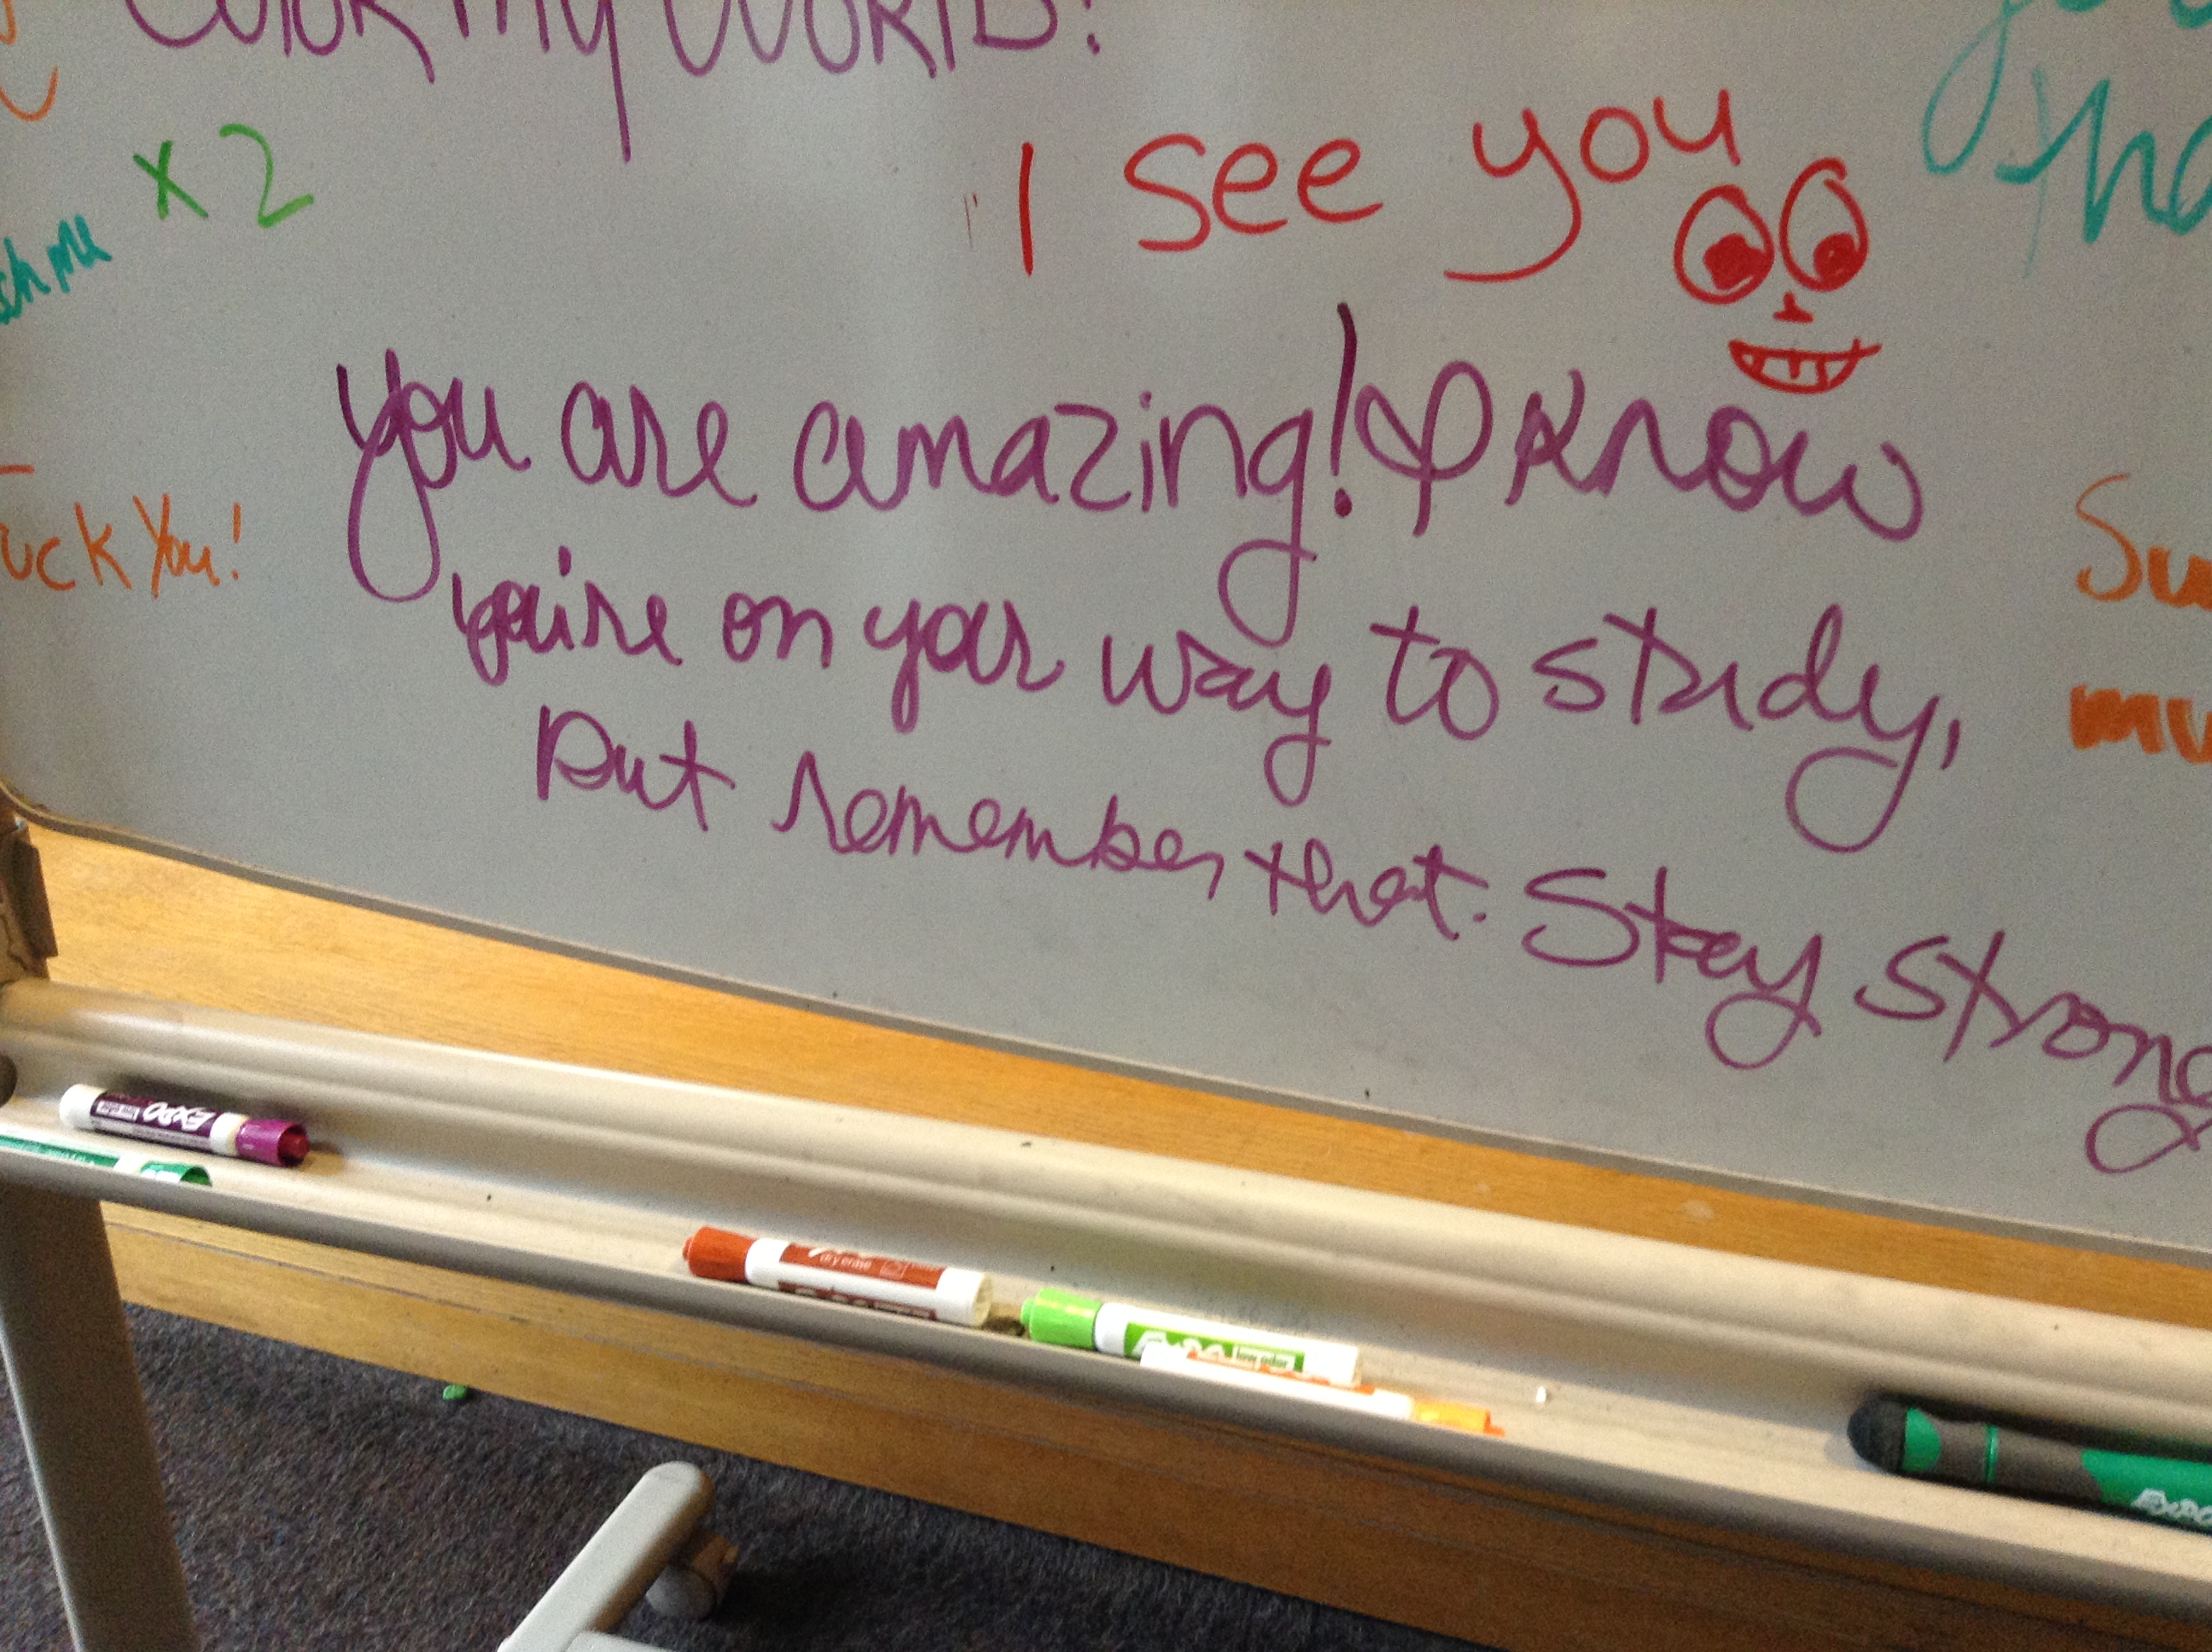 Color my WORLD!
x2
I see you
you are amazing! I know
uck You!
you're on your way to study,
but remember that. Stay strong
EXPO
dry erase
EXPO low odor
EXPO